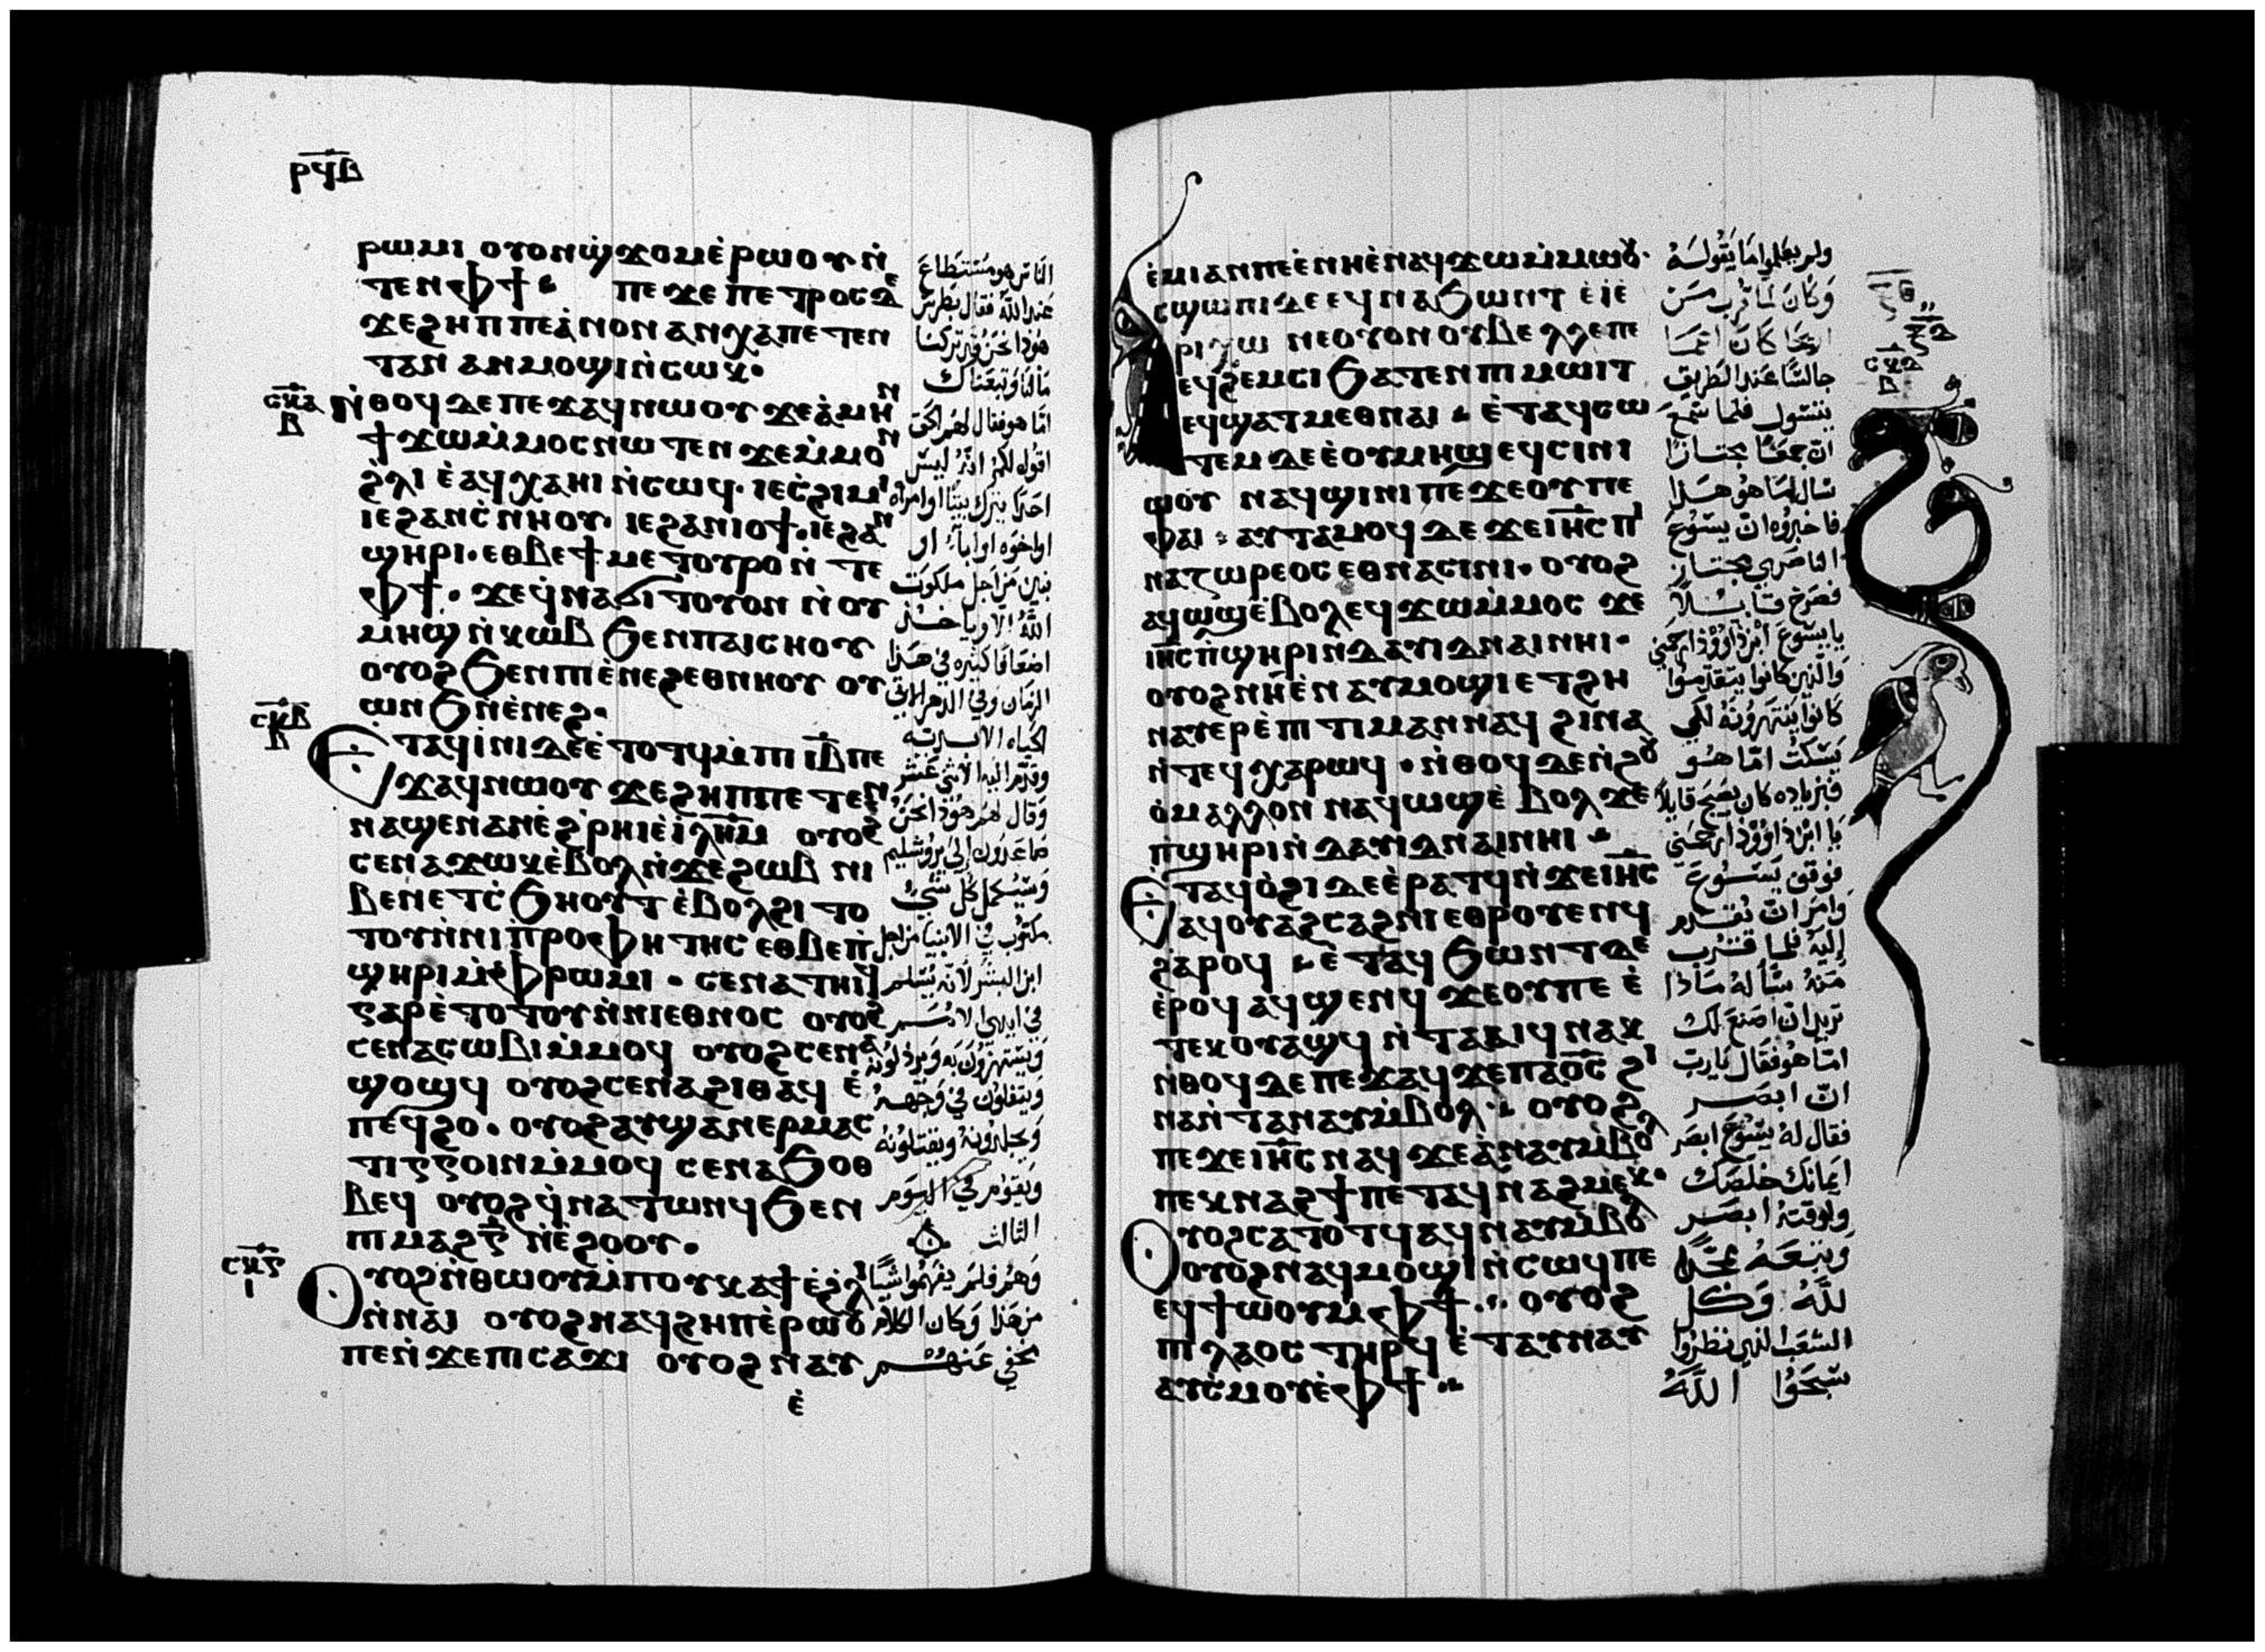 ⲣϥⲃ
ⲣⲱⲙⲓ ⲟⲩⲟⲛϣϫⲟⲙⲉ̇ⲣⲱⲟⲩ ⲛ̇
ⲧⲉⲛⲫϯ ⲡⲉϫⲉ ⲡⲉⲧⲣⲟⲥⲇⲉ
ϫⲉϩⲏⲡⲡⲉⲁ̇ⲛⲟⲛ ⲁⲛⲭⲁⲡⲉⲧⲉⲛ
ⲧⲁⲛ ⲁⲛⲙⲟϣⲓⲛ̇ⲥⲱⲕ·
ⲥⲕⲁ ⲃ ⲛ̇ⲑⲟϥ ⲇⲉ ⲡⲉϫⲁϥⲛⲱⲟⲩ ϫⲉⲁ̇ⲙⲏⲛ
ϯϫⲱⲙ̇ⲙⲟⲥⲛⲱⲧⲉⲛ ϫⲉⲙ̇ⲙⲟⲛ
ϩ̇ⲗⲓ ⲉ̇ⲁϥⲭⲁⲏⲓ ⲛ̇ⲥⲱϥ· ⲓⲉⲥ̇ϩⲓⲙⲓ
ⲓⲉϩⲁⲛⲥ̇ⲛⲏⲟⲩ· ⲓⲉϩⲁⲛⲓⲟϯ·ⲓⲉϩⲁⲛ
ϣⲏⲣⲓ·ⲉⲑⲃⲉϯⲙⲉⲧⲟⲩⲣⲟⲛ̇ ⲧⲉ
ⲫϯ· ϫⲉϥ̇ⲛⲁϭⲓⲧⲟⲩⲟⲛ ⲛ̇ⲟⲩ
ⲙⲏϣ ⲛ̇ⲕⲱⲃ ϧⲉⲛⲡⲁⲓⲥⲏⲟⲩ
ⲟⲩⲟϩ ϧⲉⲛⲡⲓⲉ̇ⲛⲉϩⲉⲑⲛⲏⲟⲩ ⲟⲩ
ⲱⲛϧⲛ̇ⲉ̇ⲛⲉϩ·
ⲥⲕⲃ ⲃ Ⲉⲧⲁϥⲓ̇ⲛⲓⲇⲉⲉ̇ⲧⲟⲧϥⲙ̇ⲡⲓⲓⲃ ⲡⲉ
ϫⲁϥⲛⲱⲟⲩ ϫⲉϩⲏⲡⲡⲉⲧⲉⲛ
ⲛⲁϣⲉⲛⲁⲛⲉ̇ϩ̇ⲣⲏⲓⲉ̇ⲓ̇ⲗⲏⲙ ⲟⲩⲟϩ
ⲥⲉⲛⲁϫⲱⲕⲉ̇ⲃⲟⲗⲛ̇ϫⲉϩⲱⲃ ⲛⲓ
ⲃⲉⲛⲉⲧⲥ̇ϧⲏⲟⲩⲧ ⲉ̇ⲃⲟⲗϩⲓⲧⲟ
ⲧⲟⲩⲛ̇ⲛⲓⲡ̇ⲣⲟⲫⲏⲧⲏⲥ ⲉⲑⲃⲉⲡ̇
ϣⲏⲣⲓⲙ̇ⲫⲣⲱⲙⲓ· ⲥⲉⲛⲁⲧⲏⲓϥ
ⲅⲁⲣⲉ̇ⲧⲟⲧⲟⲩⲛ̇ⲛⲓⲉⲑⲛⲟⲥ ⲟⲩⲟϩ
ⲥⲉⲛⲁⲥⲱⲃⲓⲙ̇ⲙⲟϥ ⲟⲩⲟϩⲥⲉⲛⲁ
ϣⲟϣϥ ⲟⲩⲟϩⲥⲉⲛⲁϩⲓⲑⲁϥ ⲉ̇
ⲡⲉϥϩⲟ· ⲟⲩⲟϩⲁⲩϣⲁⲛⲉⲣⲙⲁⲥ
ⲧⲓⲅⲅⲟⲓⲛⲙ̇ⲙⲟϥ ⲥⲉⲛⲁϧⲟⲑ
ⲃⲉϥ ⲟⲩⲟϩϥ̇ⲛⲁⲧⲱⲛϥ ϧⲉⲛ
ⲡⲓⲙⲁϩⲅ ⲛ̇ⲉ̇ϩⲟⲟⲩ·
ⲥⲕⲅ ⲓ Ⲟⲩⲟϩⲛ̇ⲑⲱⲟⲩⲙ̇ⲡⲟⲩⲕⲁϯⲉ̇ϩ̇ⲗⲓ
ⲛ̇ⲛⲁⲓ ⲟⲩⲟϩⲛⲁϥϩⲏⲡⲉ̇ⲣⲱⲟⲩ
ⲡⲉⲛ̇ϫⲉⲡⲓⲥⲁϫⲓ ⲟⲩⲟϩ ⲛⲁⲩ
ⲉ̇
الناس هو مستطاع
عند الله فقال بطرس
هوذا نحن قد تركنا
مالنا وتبعناك
اما هو فقال لهم الحق
اقول لكم انه ليس
احدا يترك بيتا او امراه
او اخوه او ابا او
بنين من اجل ملكوت
الله الا وياخذ
اضعافا كثيره في هذا
الزمان وفي الدهر الاتي
الحياه الابديه
وقدم اليه الاثني عشر
وقال لهم هوذا نحن
صاعدون الى يروشليم
وسيكمل كل شي
مكتوب في الانبيا من اجل
ابن البشر لانه يسلم
في ايدي الامم
ويستهزون به ويرذلونه
ويتفلون في وجهه
ويجلدونه ويقتلونه
ويقوم في اليوم
الثالث
وهم فلم يفهموا شيا
من هذا وكان الكلام
يخفي عنهم
ⲉ̇ⲙⲓⲁⲛⲡⲉⲉ̇ⲛⲏⲉ̇ⲛⲁϥϫⲱⲙ̇ⲙⲱⲟⲩ·
Ⲁⲥϣⲱⲡⲓⲇⲉ ⲉϥⲛⲁϧⲱⲛⲧ ⲉ̇ⲓⲉ̇
ⲣⲓⲭⲱ ⲛⲉⲟⲩⲟⲛ ⲟⲩⲃⲉⲗⲗⲉⲡⲉ
ⲉϥϩⲉⲙⲥⲓ ϧⲁⲧⲉⲛ ⲡⲓⲙⲱⲓⲧ
ⲉϥϣⲁⲧⲙⲉⲑⲛⲁⲓ ⲉ̇ⲧⲁϥⲥⲱ
ⲧⲉⲙ ⲇⲉⲉ̇ⲟⲩⲙⲏϣ ⲉϥⲥⲓⲛⲓ
ⲱⲟⲩ ⲛⲁϥϣⲓⲛⲓ ⲡⲉ ϫⲉⲟⲩⲡⲉ
ⲫⲁⲓ ⲁⲩⲧⲁⲙⲟϥ ⲇⲉ ϫⲉⲓⲏⲥ ⲡⲓ
ⲛⲁⲍⲱⲣⲉⲟⲥ ⲉⲑⲛⲁⲥⲓⲛⲓ· ⲟⲩⲟϩ
ⲁϥⲱϣⲉ̇ⲃⲟⲗ ⲉϥϫⲱⲙ̇ⲙⲟⲥ ϫⲉ
ⲓⲏⲥⲡ̇ϣⲏⲣⲓⲛ̇ⲇⲁⲩⲓⲇⲛⲁⲓⲛⲏⲓ·
ⲟⲩⲟϩⲛⲏⲉ̇ⲛⲁⲩⲙⲟϣⲓⲉⲧϩⲏ
ⲛⲁⲩⲉⲣⲉ̇ⲡⲓⲧⲓⲙⲁⲛⲛⲁϥ ϩⲓⲛⲁ
ⲛ̇ⲧⲉϥⲭⲁⲣⲱϥ · ⲛ̇ⲑⲟϥ ⲇⲉⲛ̇ϩⲟⲩ
ⲟ̇ⲙⲁⲗⲗⲟⲛ ⲛⲁϥⲱϣⲉ̇ⲃⲟⲗ ϫⲉ
ⲡ̇ϣⲏⲣⲓⲛ̇ⲇⲁⲩⲓⲇⲛⲁⲓⲛⲏⲓ
Ⲉⲧⲁϥⲟ̇ϩⲓⲇⲉⲉ̇ⲣⲁⲧϥⲛ̇ϫⲉⲓⲏⲥ
ⲁϥⲟⲩⲁϩⲥⲁϩⲛⲓⲉⲑⲣⲟⲩⲉⲛϥ
ϩⲁⲣⲟϥ ⲉ̇ⲧⲁϥϧⲱⲛⲧⲇⲉ
ⲉ̇ⲣⲟϥ ⲁϥϣⲉⲛϥ ϫⲉⲟⲩⲡⲉ ⲉ̇
ⲧⲉⲕⲟⲩⲁϣϥ ⲛ̇ⲧⲁⲁⲓϥ ⲛⲁⲕ
ⲛ̇ⲑⲟϥ ⲇⲉ ⲡⲉϫⲁϥϫⲉⲡⲁⲟⲥ ϩⲓ
ⲛⲁⲛ̇ⲧⲁⲛⲁⲩⲙ̇ⲃⲟⲗ ⲟⲩⲟϩ
ⲡⲉϫⲉⲓⲏⲥ ⲛⲁϥ ϫⲉⲁ̇ⲛⲁⲩⲙ̇ⲃⲟⲗ
ⲡⲉⲕⲛⲁϩϯⲡⲉⲧⲁϥⲛⲁϩⲙⲉⲕ·
Ⲟⲩⲟϩⲥⲁⲧⲟⲧϥⲁϥⲛⲁⲩⲙ̇ⲃⲟⲗ
ⲟⲩⲟϩⲛⲁϥⲙⲟϣⲓⲛ̇ⲥⲱϥⲡⲉ
ⲉϥϯⲱⲟⲩⲙ̇ⲫϯ· ⲟⲩⲟϩ
ⲡⲓⲗⲁⲟⲥ ⲧⲏⲣϥ ⲉ̇ⲧⲁⲩⲛⲁⲩ
ⲁⲩⲥ̇ⲙⲟⲩⲉ̇ⲫϯ
ولم يعلموا ما يقوله
وكان لما قرب من
اريحا كان اعما
جالسا عند الطريق
يتسول فلما سمع
ان جمعا مجتازا
سال ما هو هذا
فاخبروه ان يسوع
الناصري مجتاز
فصرخ قايلا
يا يسوع ابن داوود ارحمني
والذين كانوا يتقدموا
كانوا ينتهرونه لكي
يسكت اما هو
فبزياده كان يصيح قايلا
يا ابن داوود ارحمني
فوقف يسوع
وامر ان يقدم
اليه فلما قرب
منه ساله ماذا
تريد ان اصنع لك
اما هو فقال يارب
ان ابصر
فقال له يسوع ابصر
ايمانك خلصك
ولوقته ابصر
وتبعه ممجدا
لله وكل
الشعب الذين نظروا
سبحوا الله
ⲥⲕⲇ
ⲃ